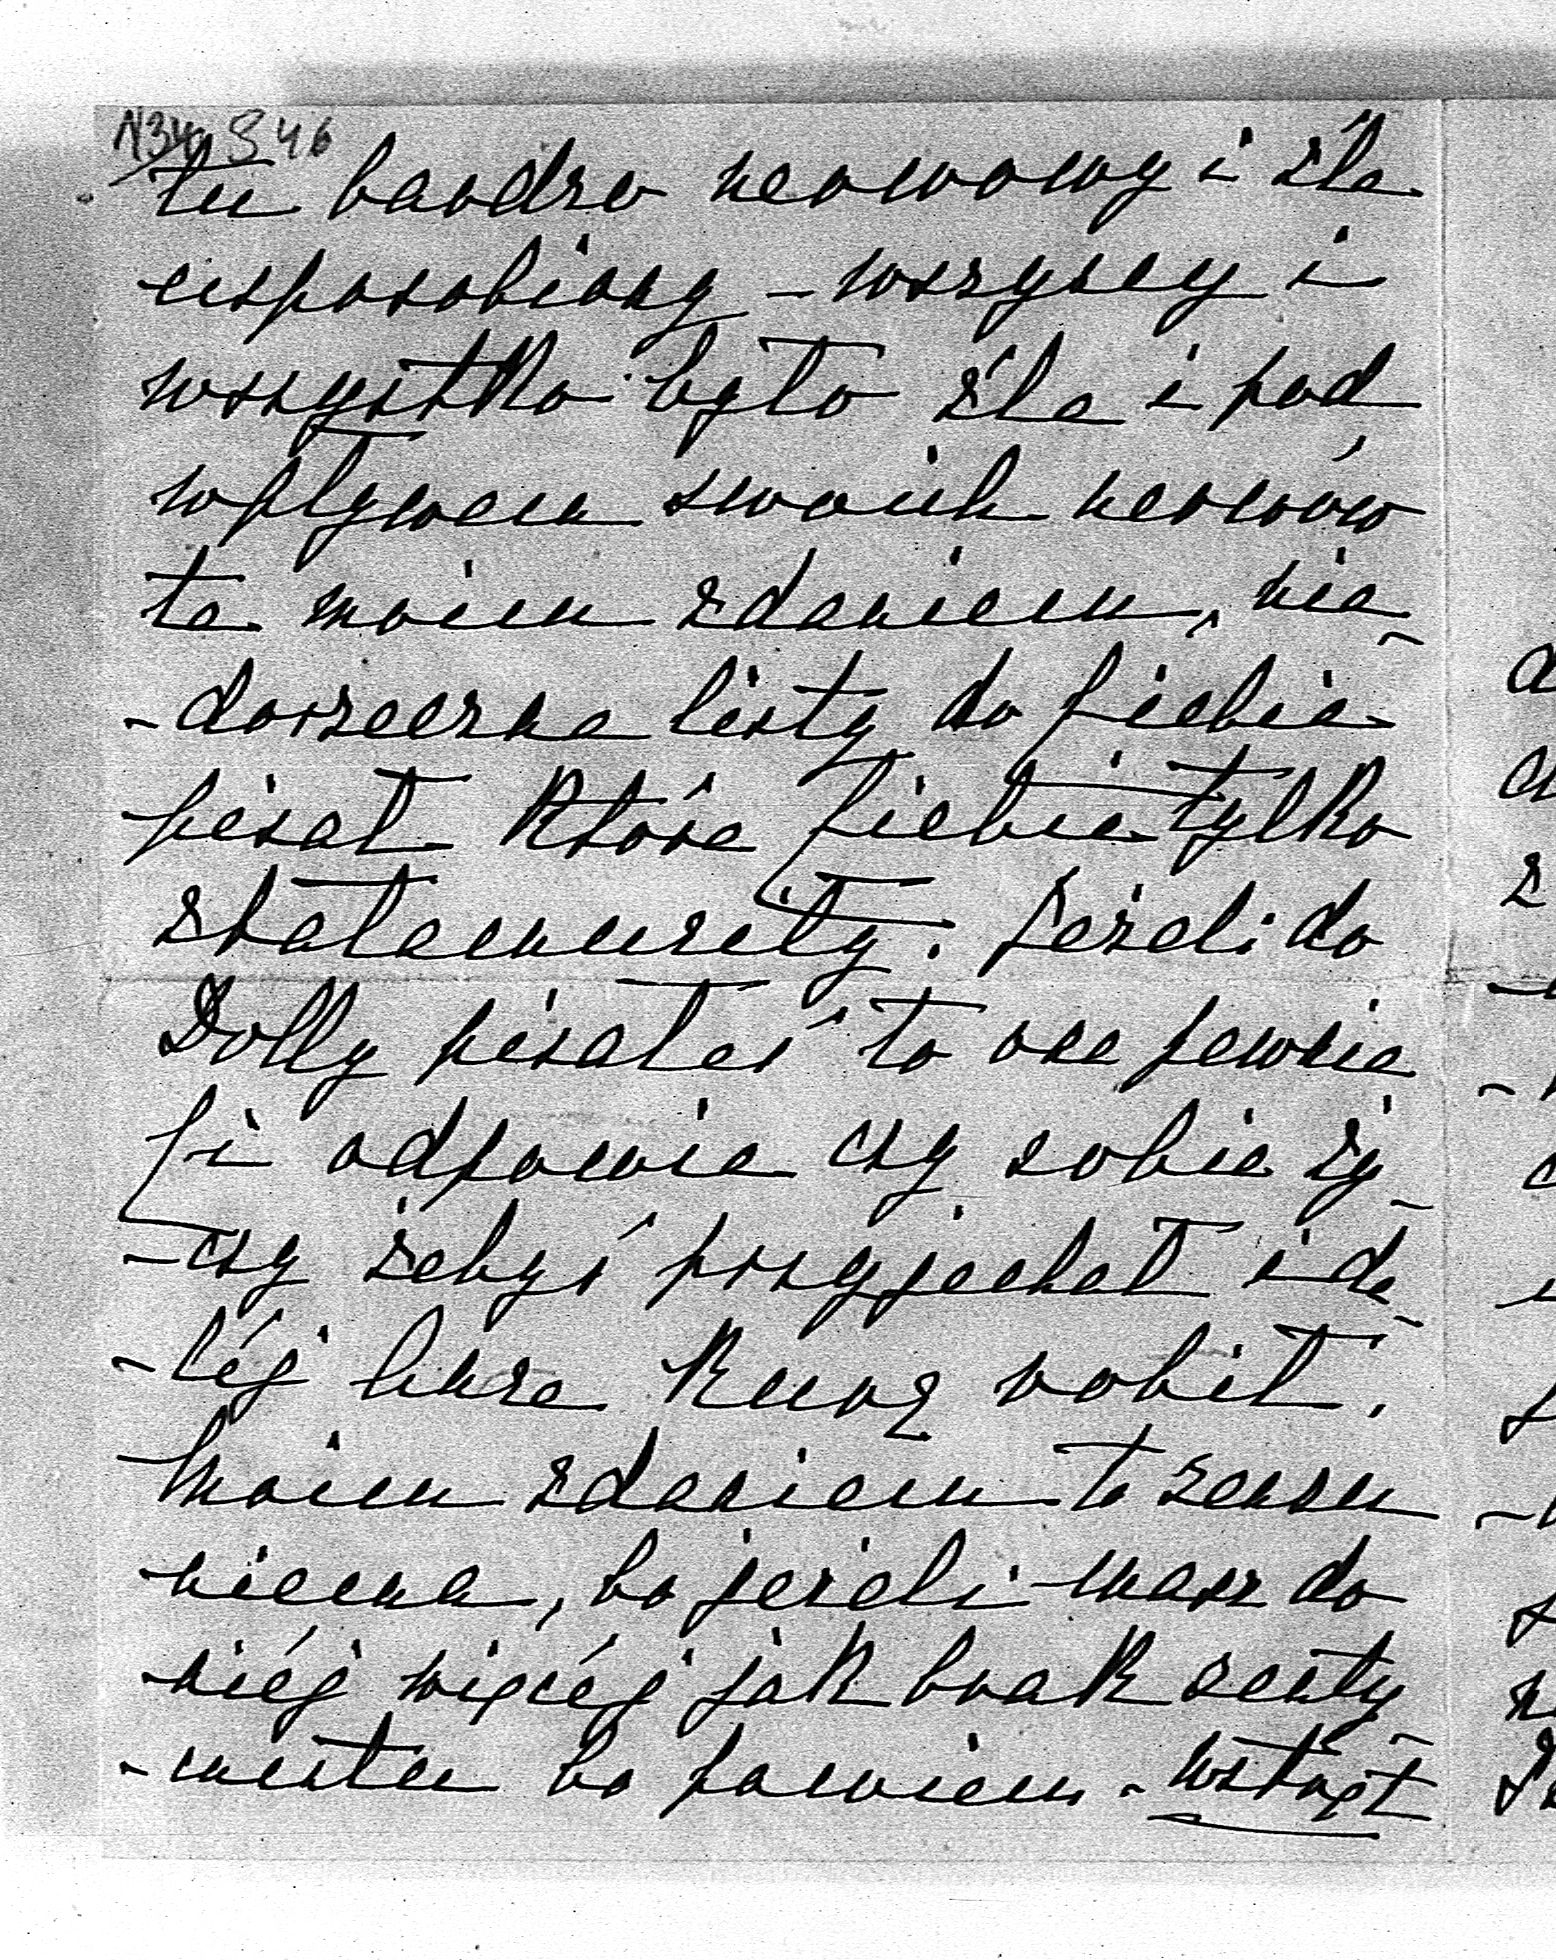 N34 S 46
tu bardzo nerwowy i źle
usposobiony – wszyscy i
wszystko było źle i pod
wpływem swoich nerwów
te moim zdaniem, nie-
-dorzeczne listy do Ciebie
pisał które Ciebie tylko
zbałamuciły. Jeżeli do
Dolly pisałeś to one pewnie
Ci odpowie czy sobie ży-
-czy żebyś przyjechał i da-
-léj kurę robił.
Moim zdaniem to sensu
niema, bo jeżeli masz do
niéj więcéj jak brak senty-
-mentu bo powiem - wstręt